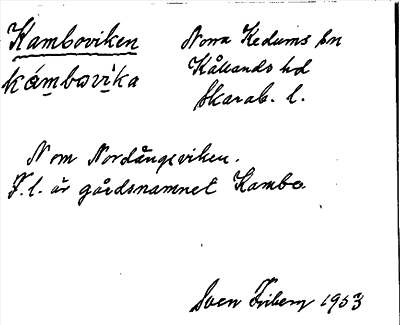 Kamboviken
kámbovìka
Norra Kedums sn
Kållands hd
Skarab. l.
N om Nordängsviken.
F.l. är gårdsnamnet Kambo.
Sven Friberg 1953